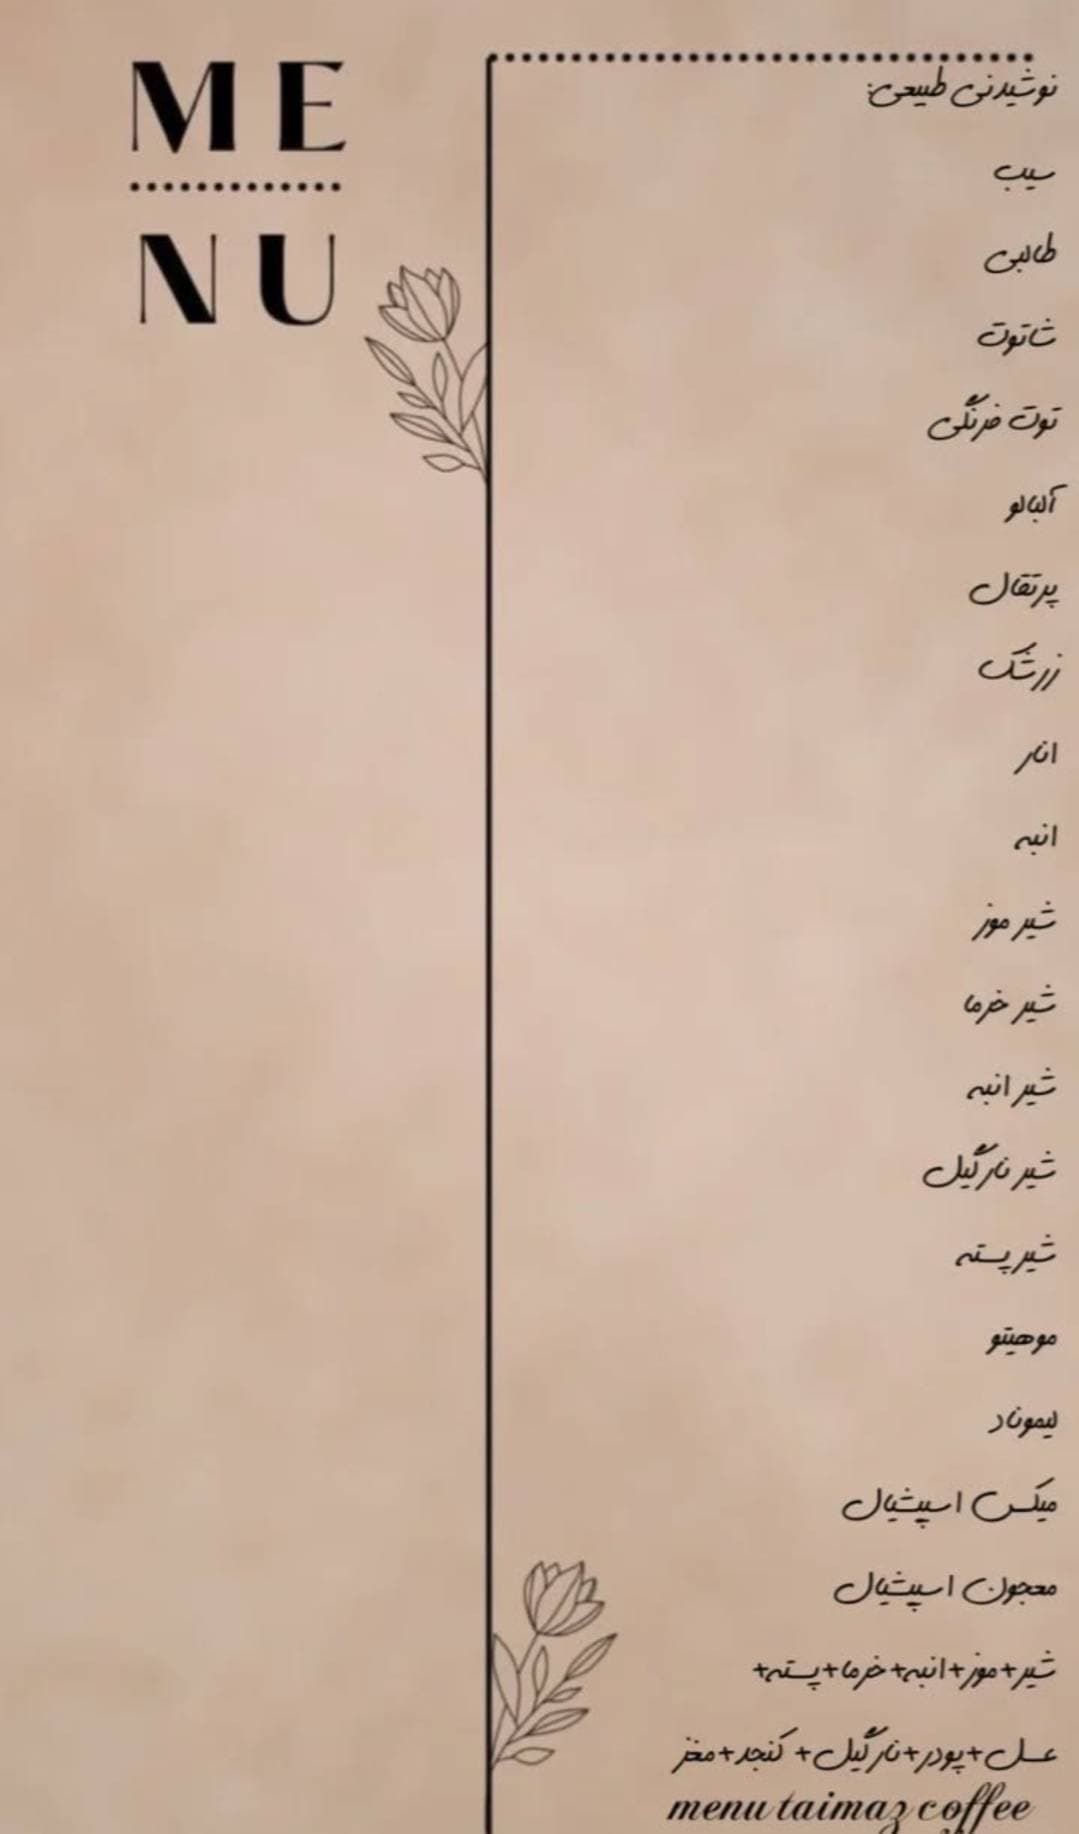 ME
NU
نوشیدنی طبیعی:
سیب
طالبی
شاتوت
توت فرنگی
آلبالو
پرتقال
زرشک
انار
انبه
شیر موز
شیر خرما
شیر انبه
شیر نارگیل
شیر پسته
موهیتو
لیموناد
میکس اسپیشیال
معجون اسپیشیال
شیر+موز+انبه+خرما+پسته+
عسل+پودر+نارگیل+کنجد+مغز
menu taimaz coffee